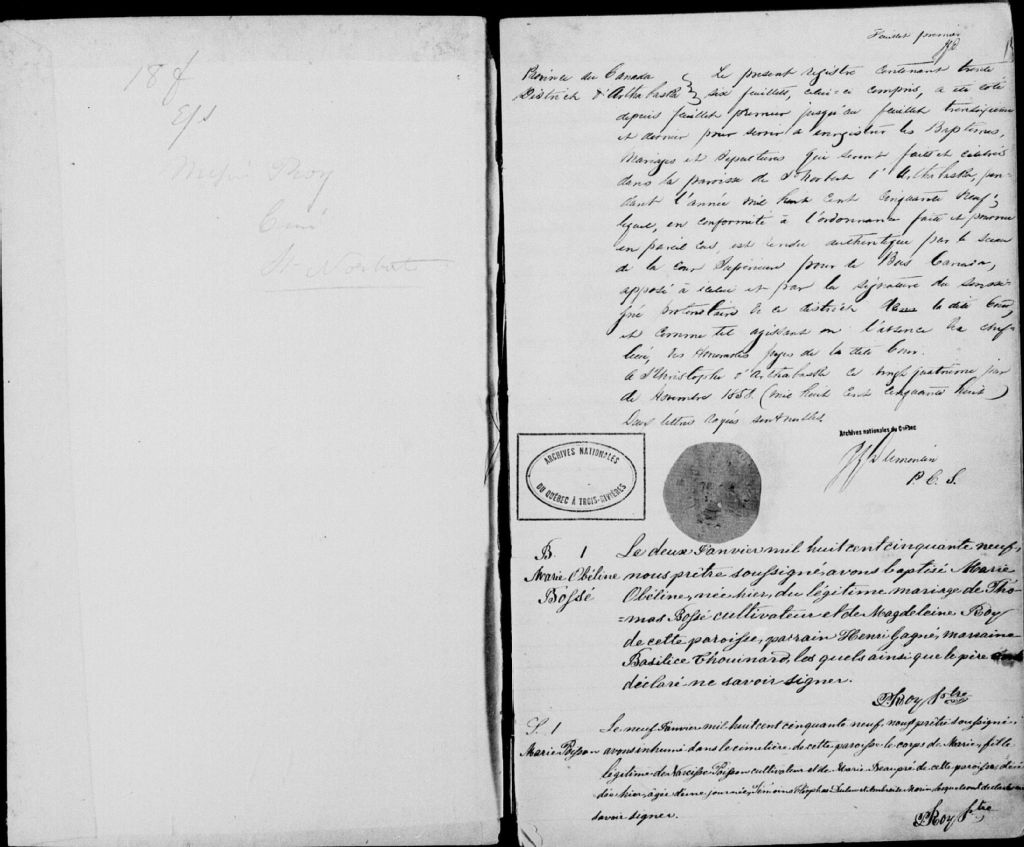 185
Messire Roy
Curé
St Norbert
Feuillet premier
Province du Canada
District d'Arthabaska
Le present registre contenant trente
six feuillets, celui-ci compris, a été coté
depuis feuillet premier jusqu'au feuillet trentesixieme
et dernier pour servir à enregistrer les Baptemes,
Mariages et Sepultures qui seront faits et célébrés
dans la paroisse de St Norbert d'Arthabaska, pen-
dant l'année mil huit cent cinquante neuf;
lequel, en conformité à l'ordonnance faite et pourvue
en pareil cas, est rendu authentique par le sceau
de la Cour Supérieure pour le Bas Canada,
apposé à icelui et par la signature du soussi-
gné protonotaire de ce district de la dite Cour,
et comme tel agissant en l'absence du chef
lieu, des Honorables juges de la dite Cour.
A St Christophe d'Arthabaska ce vingt quatrieme jour
de Novembre 1858. (mil huit cent cinquante huit)
Deux lettres rayées sont nulles.
Archives nationales du Québec
P. C. S.
ARCHIVES NATIONALES
DU QUÉBEC À TROIS-RIVIÈRES
B. 1
Marie Obéline
Bossé
Le deux Janvier mil huit cent cinquante neuf,
nous prêtre soussigné avons baptisé Marie
Obéline, née hier, du légitime mariage de Tho-
=mas Bossé cultivateur et de Magdeleine Roy
de cette paroisse, parrain Henri Gagné, marraine
Basilice Chouinard, les quels ainsi que le père
déclaré ne savoir signer.
P. Roy Ptre
S. 1
Marie Poisson
Le neuf Janvier mil huit cent cinquante neuf, nous prêtre soussigné
avons inhumé dans le cimetière de cette paroisse le corps de Marie, fille
légitime de Narcisse Poisson cultivateur et de Marie Beaupré de cette paroisse, décé-
dée hier, âgée d'une journée, Témoins
savoir signer.
P. Roy Ptre